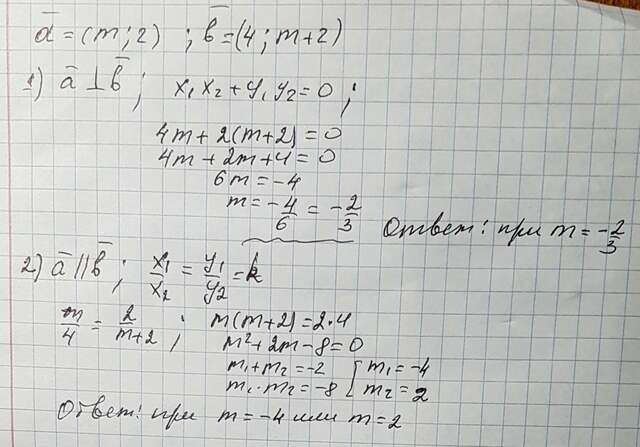 a̅ = (m; 2) ; b̅ = (4; m+2)
1) a̅ ⊥ b̅ ; x₁x₂ + y₁y₂ = 0 ;
4m + 2(m+2) = 0
4m + 2m + 4 = 0
6m = -4
m = -4/6 = -2/3
Ответ: при m = -2/3
2) a̅ || b̅ ; x₁/x₂ = y₁/y₂ = k
m/4 = 2/(m+2) ; m(m+2) = 2·4
m² + 2m - 8 = 0
m₁ + m₂ = -2 [ m₁ = -4
m₁·m₂ = -8 [ m₂ = 2
Ответ: при m = -4 или m = 2